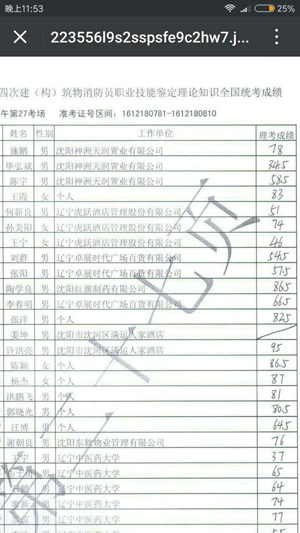 晚上11:53
223556l9s2sspsfe9c2hw7.j...
四次建（构）筑物消防员职业技能鉴定理论知识全国统考成绩
午第27考场 准考证号区间：1612180781-1612180810
姓名 性别 工作单位 理考成绩
施鹏 男 沈阳神洲天润置业有限公司 78
毕弘斌 男 沈阳神洲天润置业有限公司 34.5
陈宁 男 沈阳神洲天润置业有限公司 58.5
王霞 女 个人 83
何新良 男 辽宁虎跃酒店管理股份有限公司 51
孙美阳 女 辽宁虎跃酒店管理股份有限公司 74
王宁 女 辽宁虎跃酒店管理股份有限公司 46
刘群 男 辽宁卓展时代广场百货有限公司 54.5
张阳 男 辽宁卓展时代广场百货有限公司 57.5
陶学良 男 沈阳红旗制药有限公司 86.5
李春明 男 辽宁卓展时代广场百货有限公司 66.5
张洋 男 个人 82.5
姜坤 男 沈阳市沈河区满运人家酒店
许洪亮 男 沈阳市沈河区满运人家酒店 95
陈颖 女 个人 86.5
杨杰 女 个人 87
洪鹏飞 男 个人 81
郭晓光 男 个人 80.5
汪博 男 个人 64.5
谢朝良 男 沈阳东软物业管理有限公司 76
男 辽宁中医药大学 37
男 辽宁中医药大学 65
男 辽宁中医药大学 64
男 辽宁中医药大学 74
男 辽宁中医药大学 77
男 辽宁中医药大学 55
第二十七页